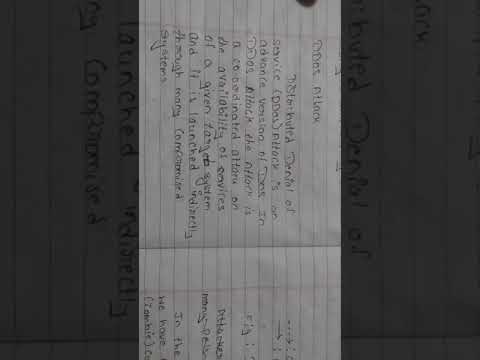 DDos Attack
Distributed Denial of
service (DDos) Attack is an
advance version of Dos In
DDos Attack the Attack is
a co-ordinated attack on
the availability of services
of a given target system
and it is launched indirectly
through many compromised
systems
Attacker
many
In the
we have
(Zombie)